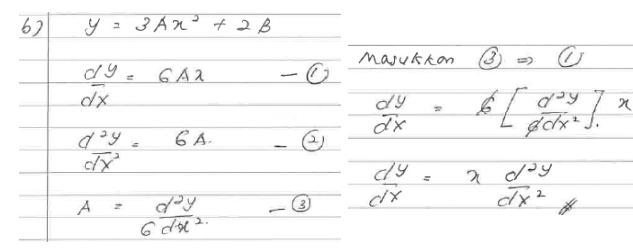 b) y = 3Ax² + 2B
dy/dx = 6Ax — ①
d²y/dx² = 6A. — ②
A = d²y/6dx². — ③
Masukkan ③ ⇒ ①
dy/dx = 6 [d²y/6dx²]. x
dy/dx = x d²y/dx²